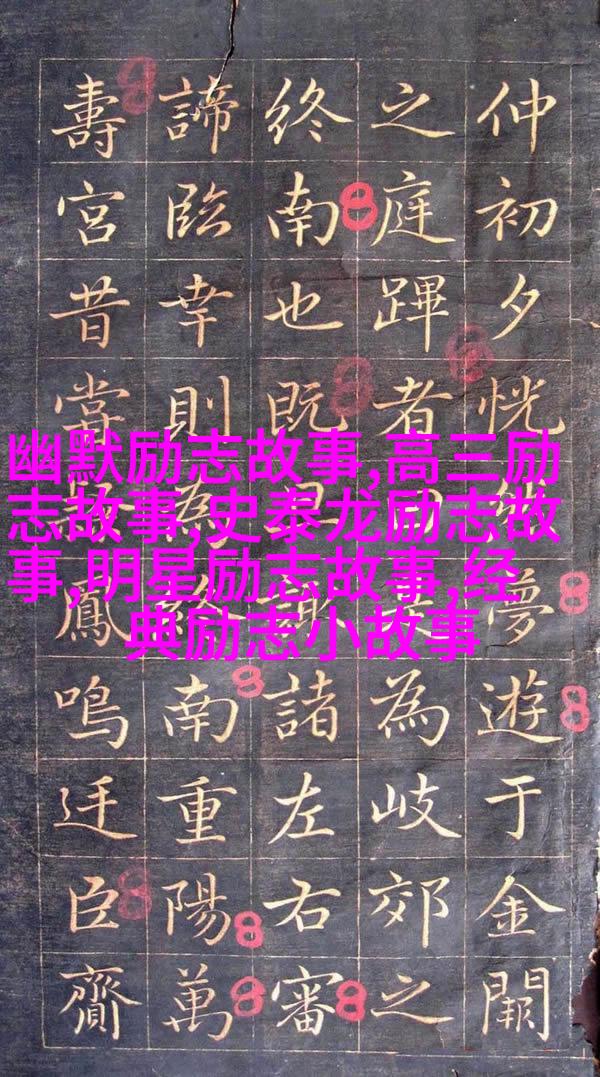 幽默励志故事,高三励
志故事,史泰龙励志故
事,明星励志故事,经
典励志小故事
仲初夕恍夢遊于金闕
之庭蹕者為岐郊之
終南也既諸左右審
諦臨幸則為南重陽萬
壽宮昔鳳鳴廷臣齎